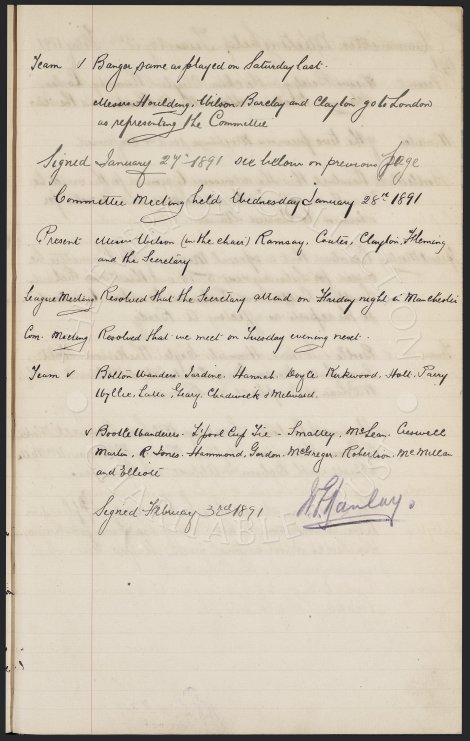 Team v Bangor same as played on Saturday last.
Messrs Houlding, Wilson Barclay and Clayton go to London
as representing the Committee
Signed January 27th 1891 see below on previous page
Committee Meeting held Wednesday January 28th 1891
Present Messrs Wilson (in the chair) Ramsay, Coates, Clayton, Fleming
and the Secretary
League Meeting Resolved that the Secretary attend on Friday night in Manchester
Com. Meeting Resolved that we meet on Tuesday evening next.
Team v Bolton Wanders. Jardine. Hannah. Doyle Kirkwood. Holt. Parry
Wyllie. Latta Geary. Chadwick & Milward.
v Bootle Wanderers. L'pool Cup Tie - Smalley, McLean. Creswell
Martin, R Jones. Hammond, Gordon. McGregor. Robertson. McMillan
and Elliott
Signed February 3rd 1891